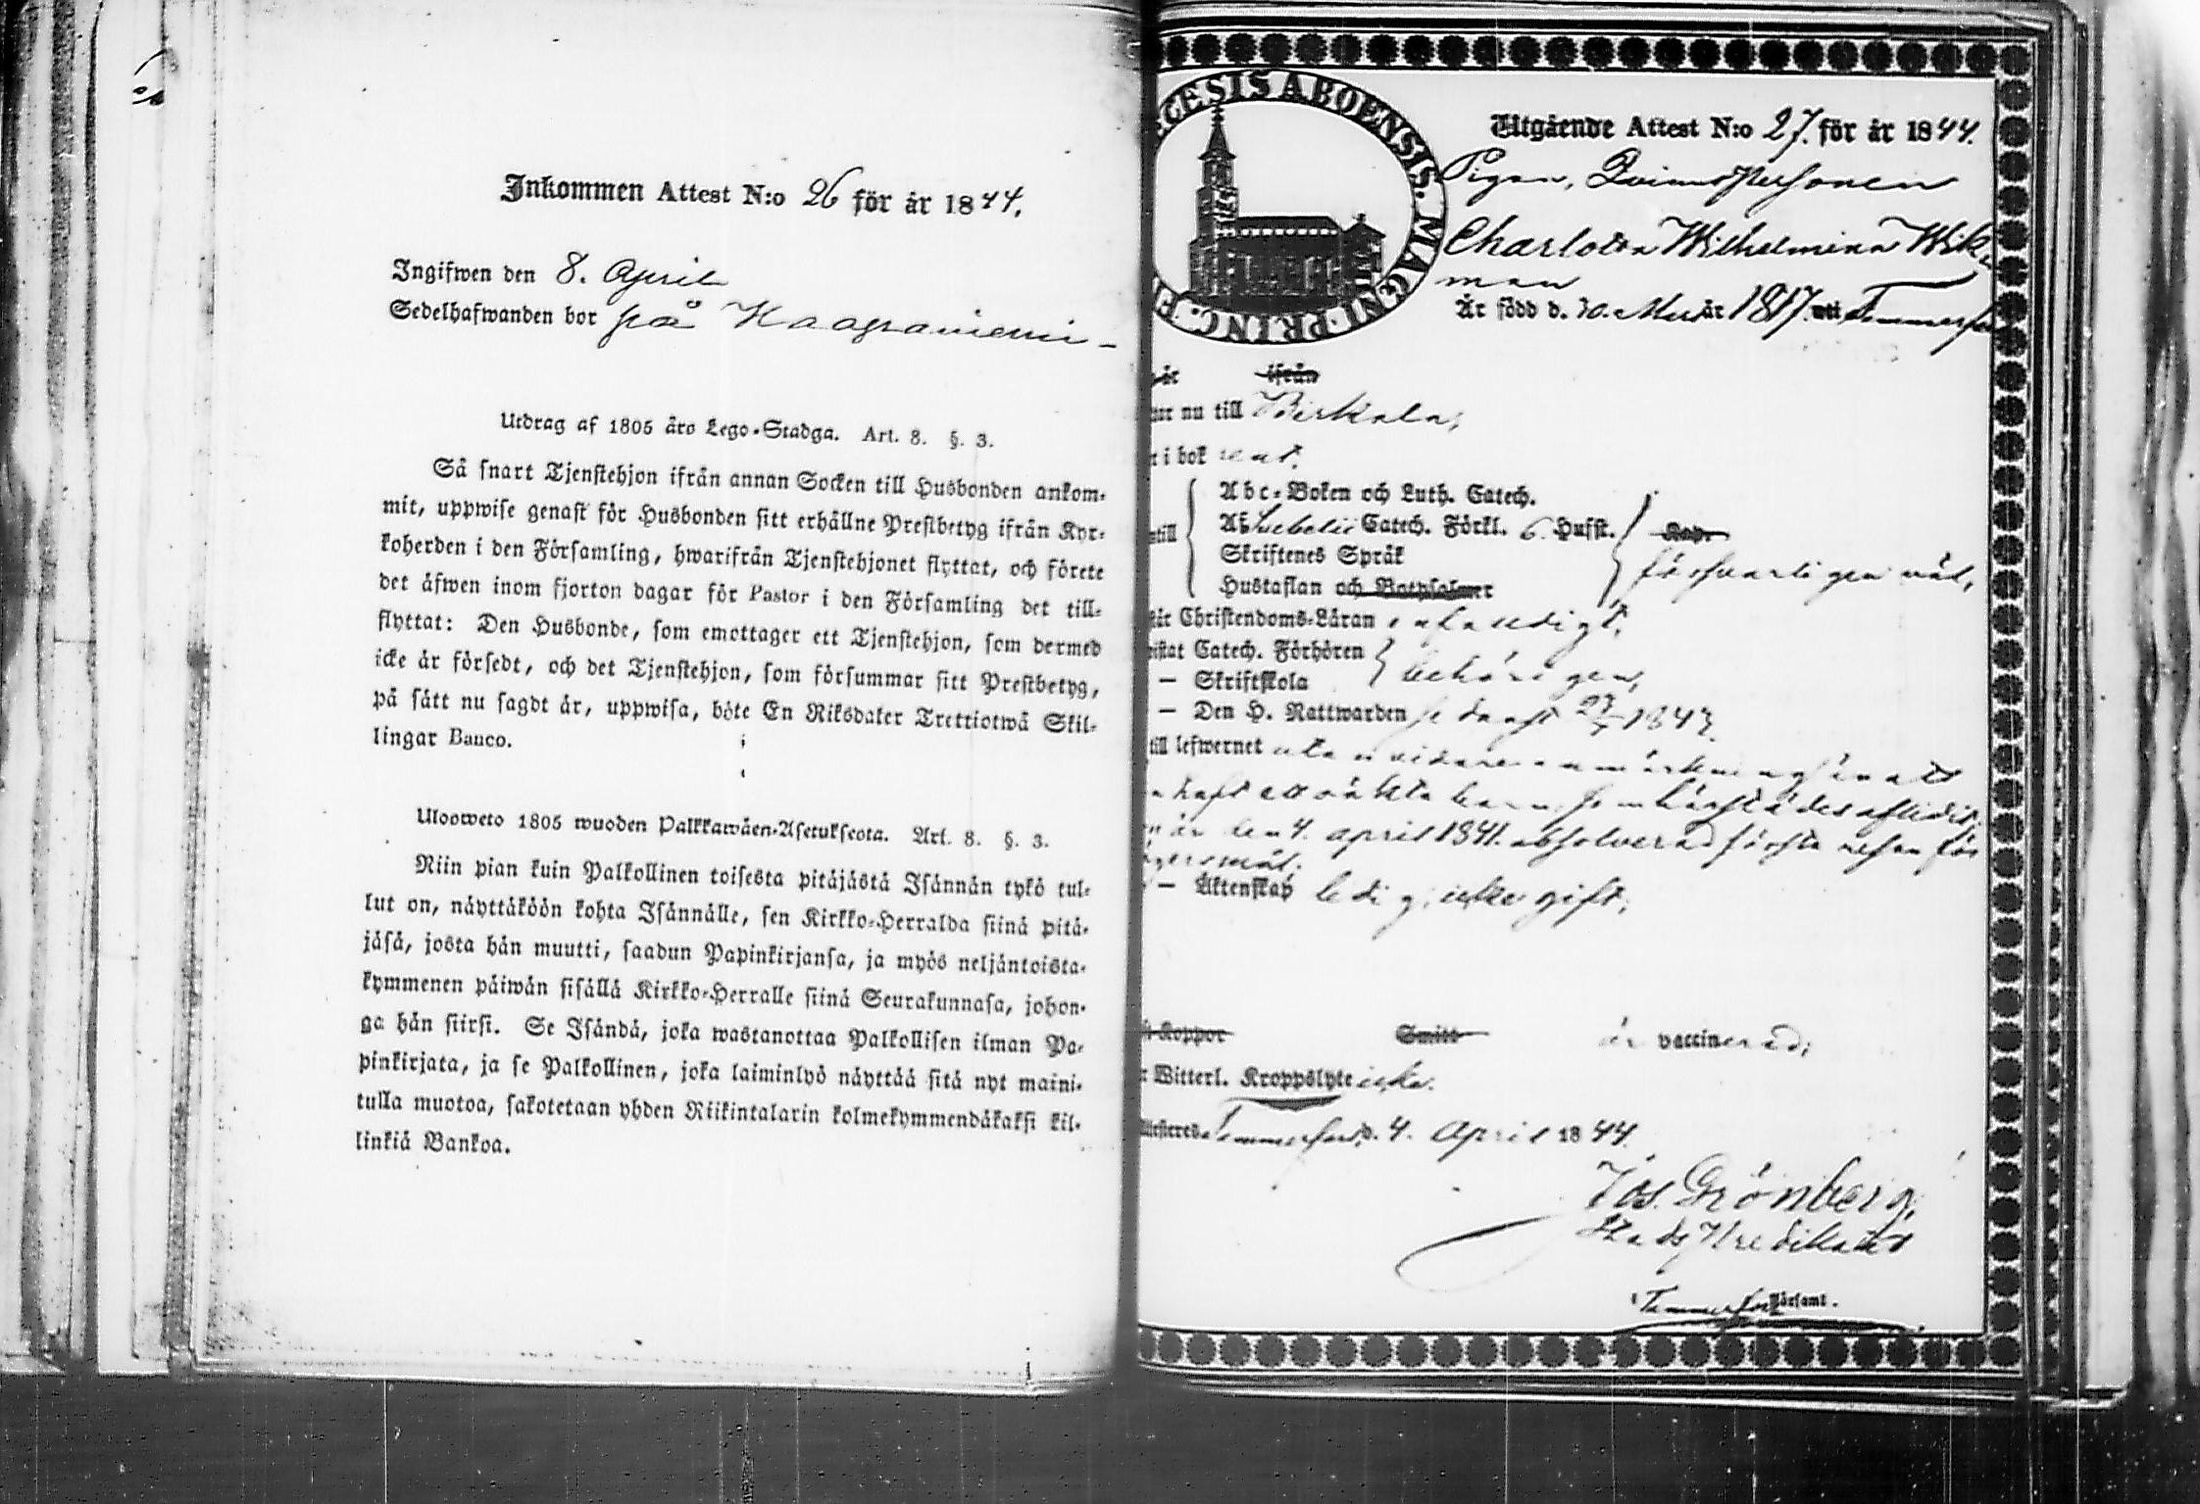 Inkommen Attest N:o 26 för år 1844.
Ingifwen den 8. April
Sedelhafwanden bor på Haapaniemi
Utdrag af 1805 års Lego-Stadga. Art. 8. §. 3.
Så snart Tjenstehjon ifrån annan Socken till Husbonden ankom-
mit, uppwise genast för Husbonden sitt erhållne Prestbetyg ifrån Kyr-
koherden i den Församling, hwarifrån Tjenstehjonet flyttat, och förete
det åfwen inom fjorton dagar för Pastor i den Församling det till-
flyttat: Den Husbonde, som emottager ett Tjenstehjon, som dermed
icke är försedt, och det Tjenstehjon, som försummar sitt Prestbetyg,
på sätt nu sagdt är, uppwisa, böte En Riksdaler Trettiotwå Skil-
lingar Banco.
Ulosweto 1805 wuoden Palkkawäen-Asetuksesta. Art. 8. §. 3.
Niin pian kuin Palkollinen toisesta pitäjästä Isännän tykö tul-
lut on, näyttäköön kohta Isännälle, sen Kirkko-Herralda siinä pitä-
jäsä, josta hän muutti, saadun Papinkirjansa, ja myös neljäntoista-
kymmenen päiwän sisällä Kirkko-Herralle siinä Seurakunnasa, johon-
ga hän siirsi. Se Isändä, joka wastanottaa Palkollisen ilman Pa-
pinkirjata, ja se Palkollinen, joka laiminlyö näyttää sitä nyt maini-
tulla muotoa, sakotetaan yhden Riikintalarin kolmekymmendäkaksi kil-
linkiä Bankoa.
ECESIS ABOENSIS. MAGNI PRINC. F
Utgående Attest N:o 27. för år 1844.
Pigan, Qvinnspersonen
Charlotta Wilhelmina Wik-
man
Är född d. 30. år 1817. Tammerfors
år ifrån
nu till Birkala,
i bok
Abc-Boken och Luth. Catech.
Svebelii Catech. Förkl. 6. Hufst.
Skriftenes Språk
Hustaflan och Botpsalmer
försvarligen väl,
Christendoms-Läran
Catech. Förhören
— Skriftskola
behörigen,
— Den H. Nattwarden sedanst 1843.
till lefwernet utan vidare anmärkning än att
haft ett oäkta barn, som härstädes aflidit,
är den 4. april 1841. absolverad första resan för
lägersmål.
— Äktenskap ledig, icke gift,
Koppor Smitt är vaccinerad;
Witterl. Kroppslyte icke.
Tammerfors d. 4. April 1844.
Jos. Grönberg,
Stads Predikant
i Tammerfors Församl.